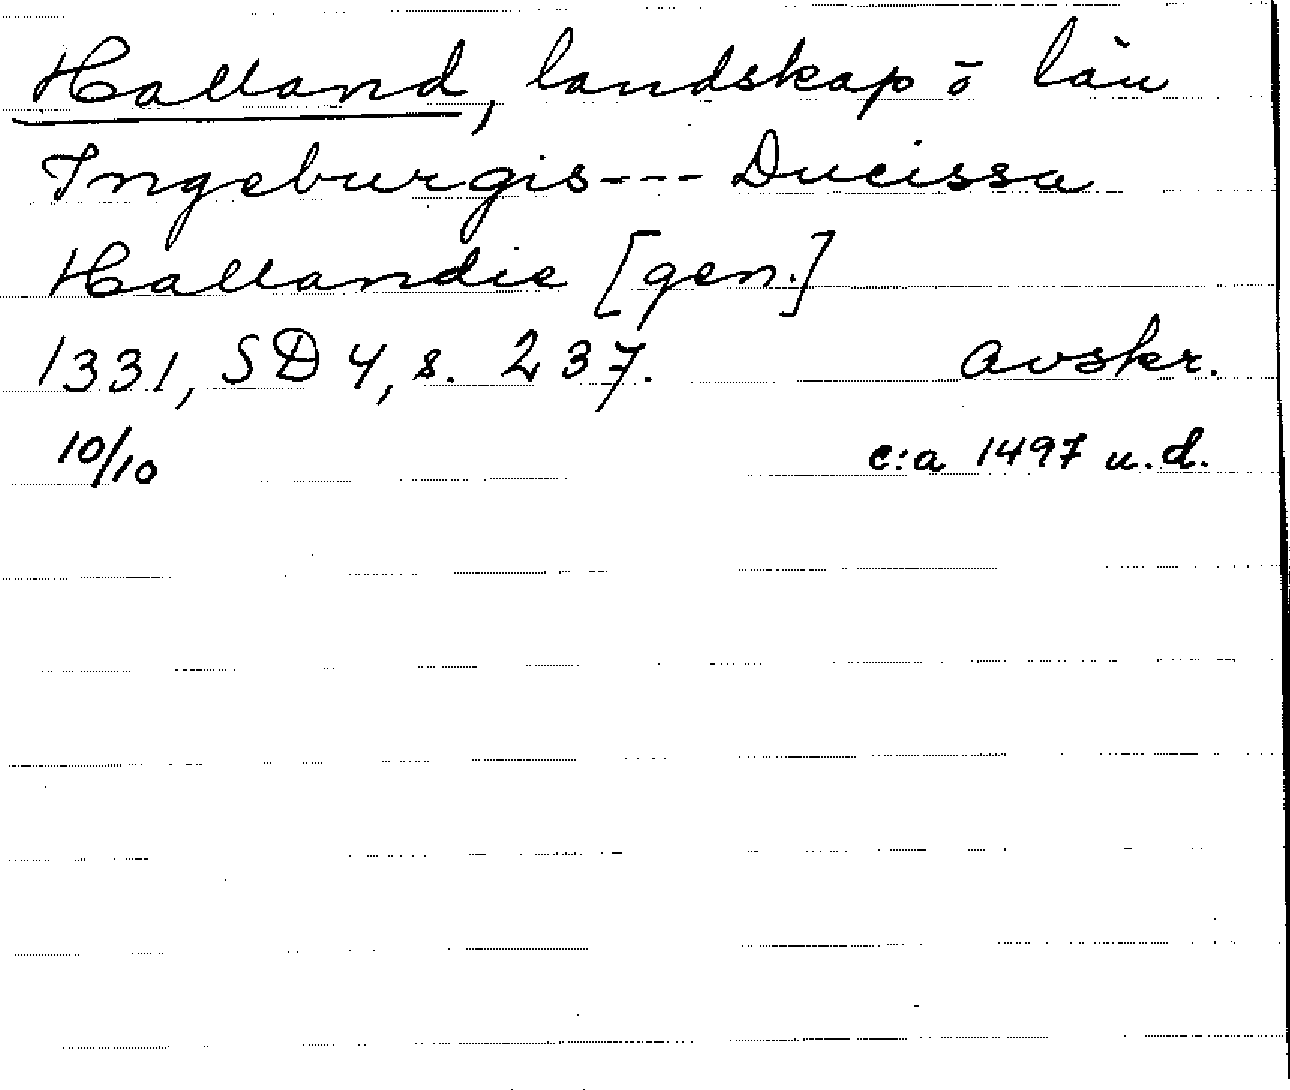 Halland, landskap o län
Ingeburgis --- Ducissa
Hallandie [gen.]
1331, SD 4, s. 237. avskr.
10/10 c:a 1497 u.d.